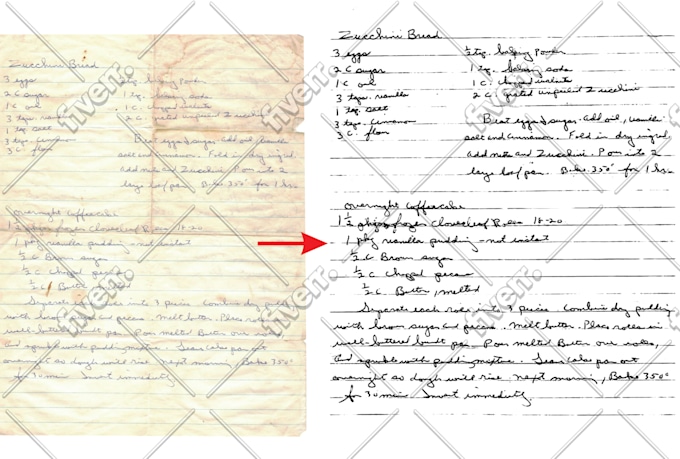 Zucchini Bread
3 eggs
2 C sugar
1 C oil
3 tsp. vanilla
1 tsp salt
3 tsps. Cinnamon
3 C. flour
½ tsp. baking powder
1 tsp. baking soda
1 C. chopped walnuts
2 C. grated unpeeled Zucchini
Beat eggs & sugar. Add oil, vanilla
salt and cinnamon. Fold in dry ingred.
add nuts and Zucchini. Pour into 2
large loaf pan. Bake 350° for 1 hr
Overnight Coffeecake
1 ½ pkgs frozen Cloverleaf Rolls 18-20
1 pkg vanilla pudding - not instant
½ C Brown sugar
½ C Chopped pecans
½ C. Butter, melted
Separate each roll into 3 pieces Combine dry pudding
with brown sugar and pecans. Melt butter. Place rolls in
well-buttered bundt pan. Pour melted Butter over rolls,
and sprinkle with pudding mixture. Leave cake pan out
overnight so dough will rise next morning, Bake 350°
for 30 min Invert immediately
fiverr.